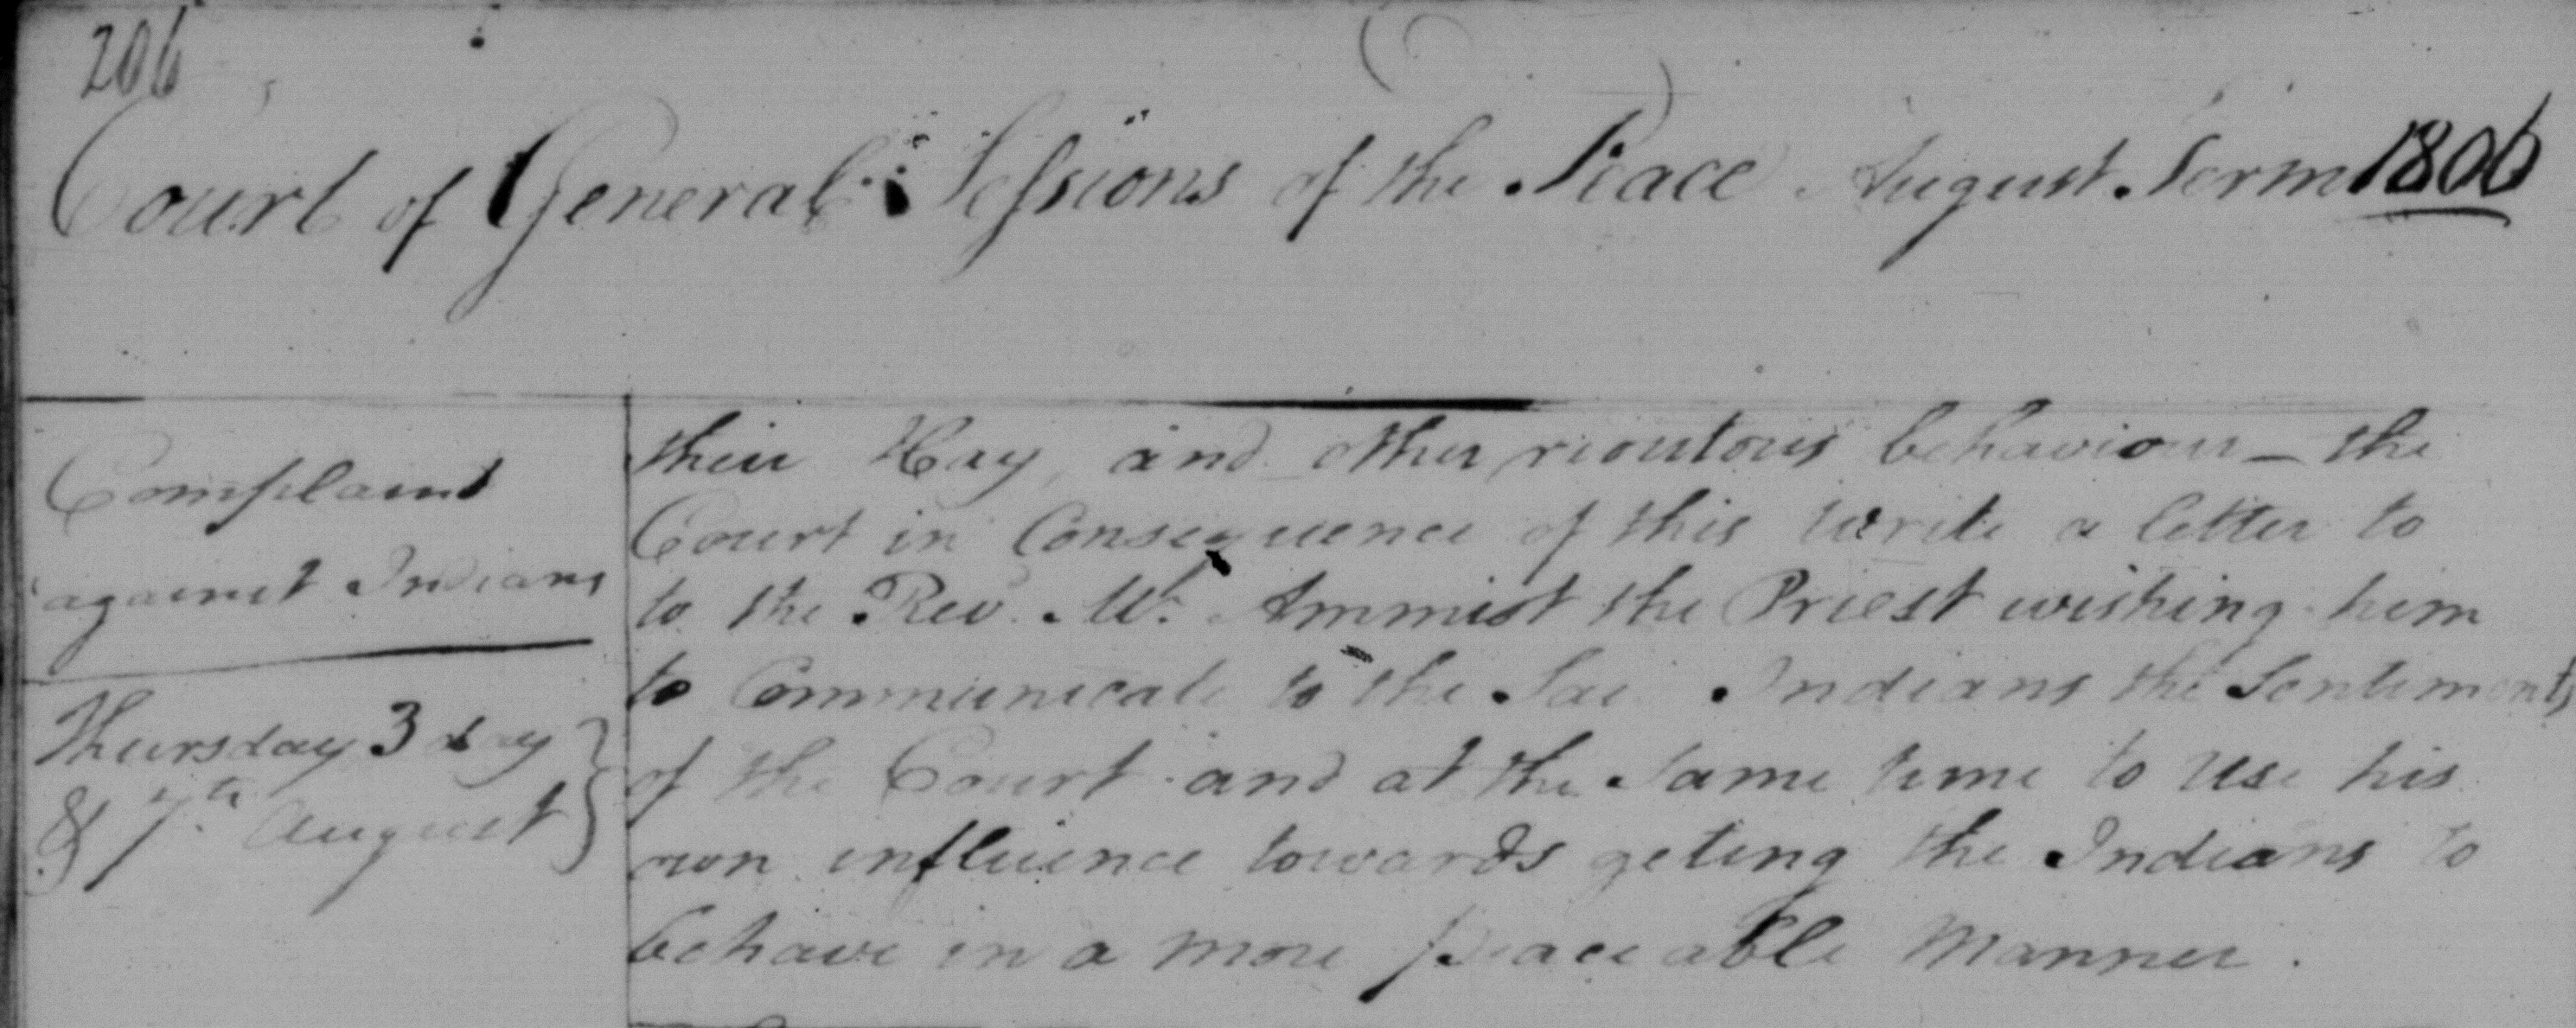 206
Court of General Sessions of the Peace August Term 1806
Complaint
against Indians
Thursday 3 day
& 7th August
their Hay, and other rioutous behaviour - the
Court in Consequence of this write a letter to
to the Rev. Mr. Ammiot the Priest wishing him
to Communicate to the Sai Indians the Sentiments
of the Court and at the Same time to Use his
own influence towards geting the Indians to
behave in a more peaceable Manner.